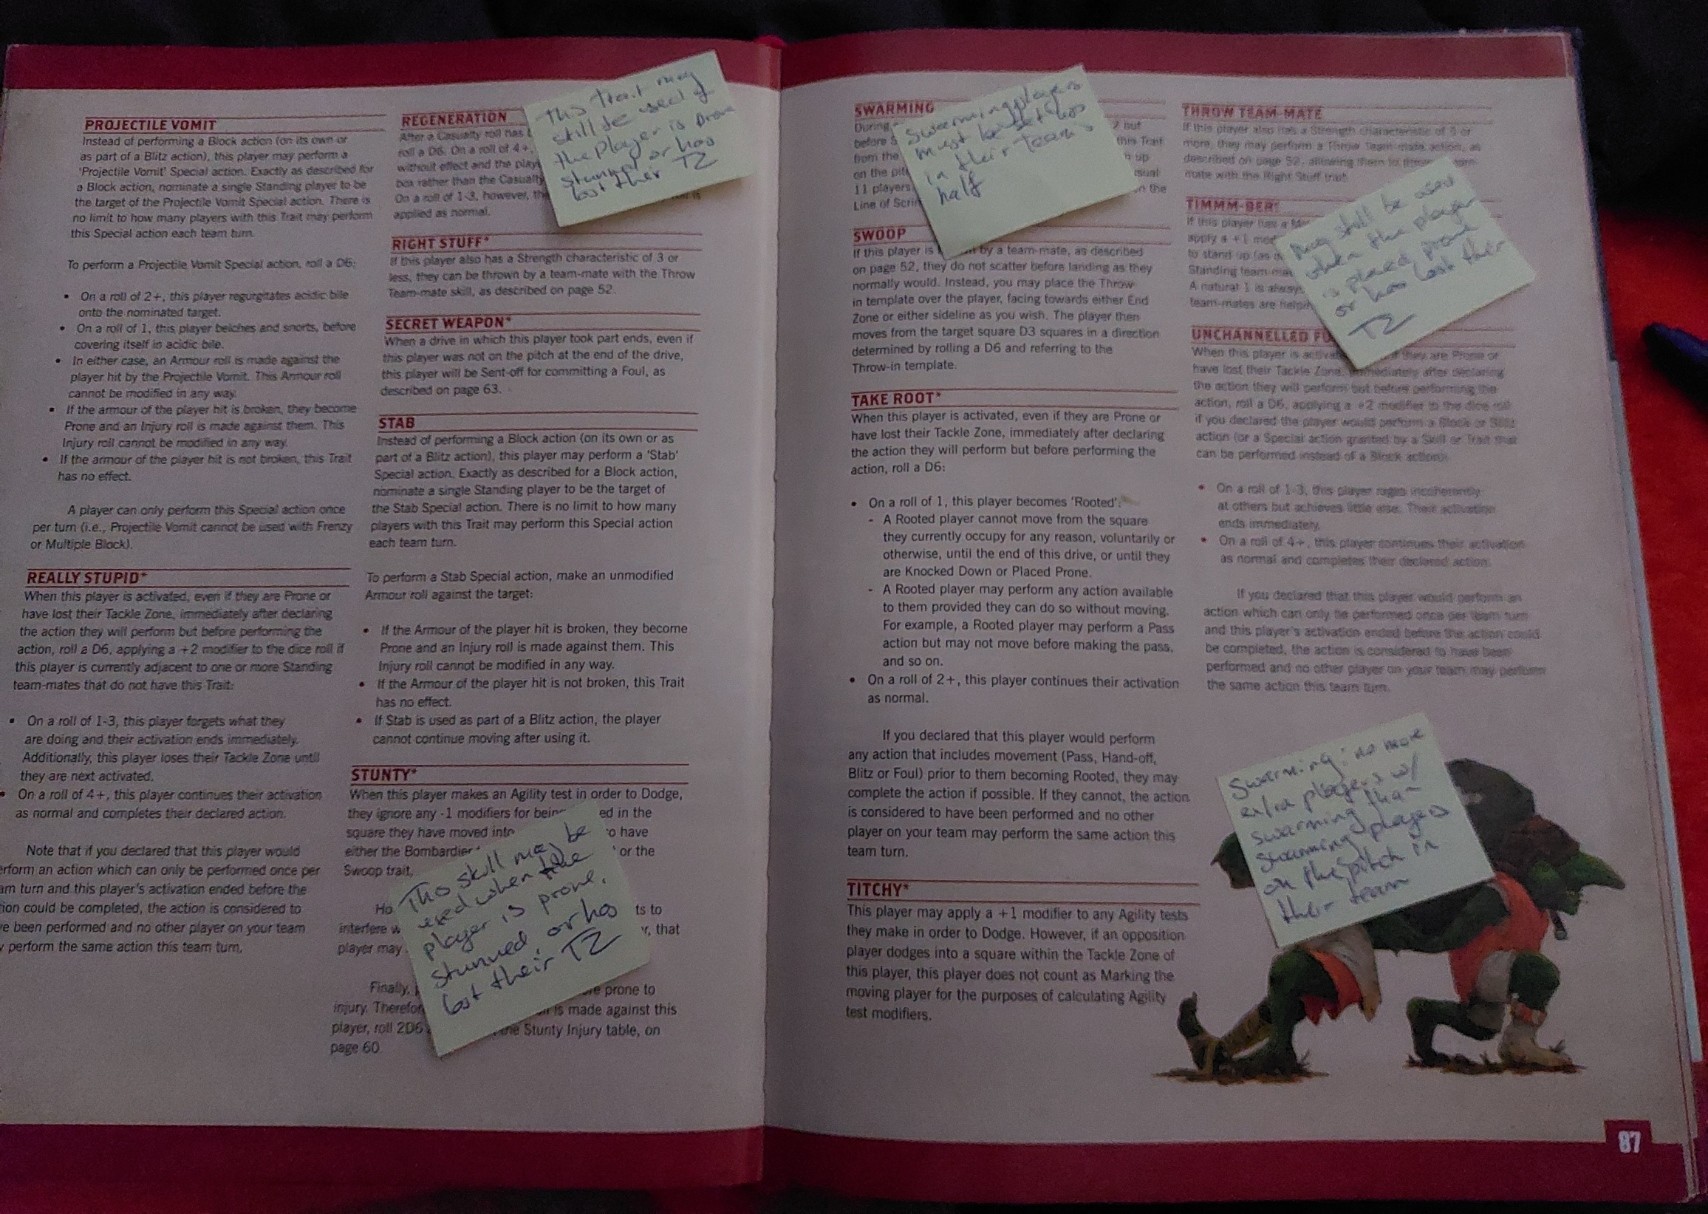 PROJECTILE VOMIT
Instead of performing a Block action (on its own or
as part of a Blitz action), this player may perform a
'Projectile Vomit' Special action. Exactly as described for
a Block action, nominate a single Standing player to be
the target of the Projectile Vomit Special action. There is
no limit to how many players with this Trait may perform
this Special action each team turn.
To perform a Projectile Vomit Special action, roll a D6:
• On a roll of 2+, this player regurgitates acidic bile
onto the nominated target.
• On a roll of 1, this player belches and snorts, before
covering itself in acidic bile.
• In either case, an Armour roll is made against the
player hit by the Projectile Vomit. This Armour roll
cannot be modified in any way.
• If the armour of the player hit is broken, they become
Prone and an Injury roll is made against them. This
Injury roll cannot be modified in any way.
• If the armour of the player hit is not broken, this Trait
has no effect.
A player can only perform this Special action once
per turn (i.e., Projectile Vomit cannot be used with Frenzy
or Multiple Block).
REALLY STUPID*
When this player is activated, even if they are Prone or
have lost their Tackle Zone, immediately after declaring
the action they will perform but before performing the
action, roll a D6, applying a +2 modifier to the dice roll if
this player is currently adjacent to one or more Standing
team-mates that do not have this Trait:
• On a roll of 1-3, this player forgets what they
are doing and their activation ends immediately.
Additionally, this player loses their Tackle Zone until
they are next activated.
• On a roll of 4+, this player continues their activation
as normal and completes their declared action.
Note that if you declared that this player would
erform an action which can only be performed once per
am turn and this player's activation ended before the
ion could be completed, the action is considered to
e been performed and no other player on your team
perform the same action this team turn.
REGENERATION
After a Casualty roll has
roll a D6. On a roll of 4+,
without effect and the play
box rather than the Casualty
On a roll of 1-3, however, the
applied as normal.
This Trait may
still be used if
the player is prone
stunned or has
lost their TZ
RIGHT STUFF*
If this player also has a Strength characteristic of 3 or
less, they can be thrown by a team-mate with the Throw
Team-mate skill, as described on page 52.
SECRET WEAPON*
When a drive in which this player took part ends, even if
this player was not on the pitch at the end of the drive,
this player will be Sent-off for committing a Foul, as
described on page 63.
STAB
Instead of performing a Block action (on its own or as
part of a Blitz action), this player may perform a 'Stab'
Special action. Exactly as described for a Block action,
nominate a single Standing player to be the target of
the Stab Special action. There is no limit to how many
players with this Trait may perform this Special action
each team turn.
To perform a Stab Special action, make an unmodified
Armour roll against the target:
• If the Armour of the player hit is broken, they become
Prone and an Injury roll is made against them. This
Injury roll cannot be modified in any way.
• If the Armour of the player hit is not broken, this Trait
has no effect.
• If Stab is used as part of a Blitz action, the player
cannot continue moving after using it.
STUNTY*
When this player makes an Agility test in order to Dodge,
they ignore any -1 modifiers for being ed in the
square they have moved into to have
either the Bombardier or the
Swoop trait,
Ho ts to
interfere w r, that
player may
Finally, prone to
injury. Therefor is made against this
player, roll 2D6 the Stunty Injury table, on
page 60.
This skill may be
used when the
player is prone,
stunned, or has
lost their TZ
SWARMING
During but
before S this Trait
from the up
on the pit usual
11 players on the
Line of Scrim
Swarming players
must be set up
in their team's
half
SWOOP
If this player is by a team-mate, as described
on page 52, they do not scatter before landing as they
normally would. Instead, you may place the Throw-
in template over the player, facing towards either End
Zone or either sideline as you wish. The player then
moves from the target square D3 squares in a direction
determined by rolling a D6 and referring to the
Throw-in template.
TAKE ROOT*
When this player is activated, even if they are Prone or
have lost their Tackle Zone, immediately after declaring
the action they will perform but before performing the
action, roll a D6:
• On a roll of 1, this player becomes 'Rooted':
- A Rooted player cannot move from the square
they currently occupy for any reason, voluntarily or
otherwise, until the end of this drive, or until they
are Knocked Down or Placed Prone.
- A Rooted player may perform any action available
to them provided they can do so without moving.
For example, a Rooted player may perform a Pass
action but may not move before making the pass,
and so on.
• On a roll of 2+, this player continues their activation
as normal.
If you declared that this player would perform
any action that includes movement (Pass, Hand-off,
Blitz or Foul) prior to them becoming Rooted, they may
complete the action if possible. If they cannot, the action
is considered to have been performed and no other
player on your team may perform the same action this
team turn.
TITCHY*
This player may apply a +1 modifier to any Agility tests
they make in order to Dodge. However, if an opposition
player dodges into a square within the Tackle Zone of
this player, this player does not count as Marking the
moving player for the purposes of calculating Agility
test modifiers.
THROW TEAM-MATE
If this player also has a Strength characteristic of 5 or
more, they may perform a Throw Team-mate action, as
described on page 52, allowing them to throw a team-
mate with the Right Stuff trait.
TIMMM-BER!
If this player has a Mo
apply a +1 mod
to stand up (as d
Standing team-ma
A natural 1 is always
team-mates are helpin
May still be used
when the player
is placed prone
or has lost their
TZ
UNCHANNELLED FU
When this player is activate if they are Prone or
have lost their Tackle Zone, immediately after declaring
the action they will perform but before performing the
action, roll a D6, applying a +2 modifier to the dice roll
if you declared the player would perform a Block or Blitz
action (or a Special action granted by a Skill or Trait that
can be performed instead of a Block action):
• On a roll of 1-3, this player rages incoherently
at others but achieves little else. Their activation
ends immediately.
• On a roll of 4+, this player continues their activation
as normal and completes their declared action.
If you declared that this player would perform an
action which can only be performed once per team turn
and this player's activation ended before the action could
be completed, the action is considered to have been
performed and no other player on your team may perform
the same action this team turn.
Swarming: no more
extra players w/
swarming than
swarming players
on the pitch in
their team
87